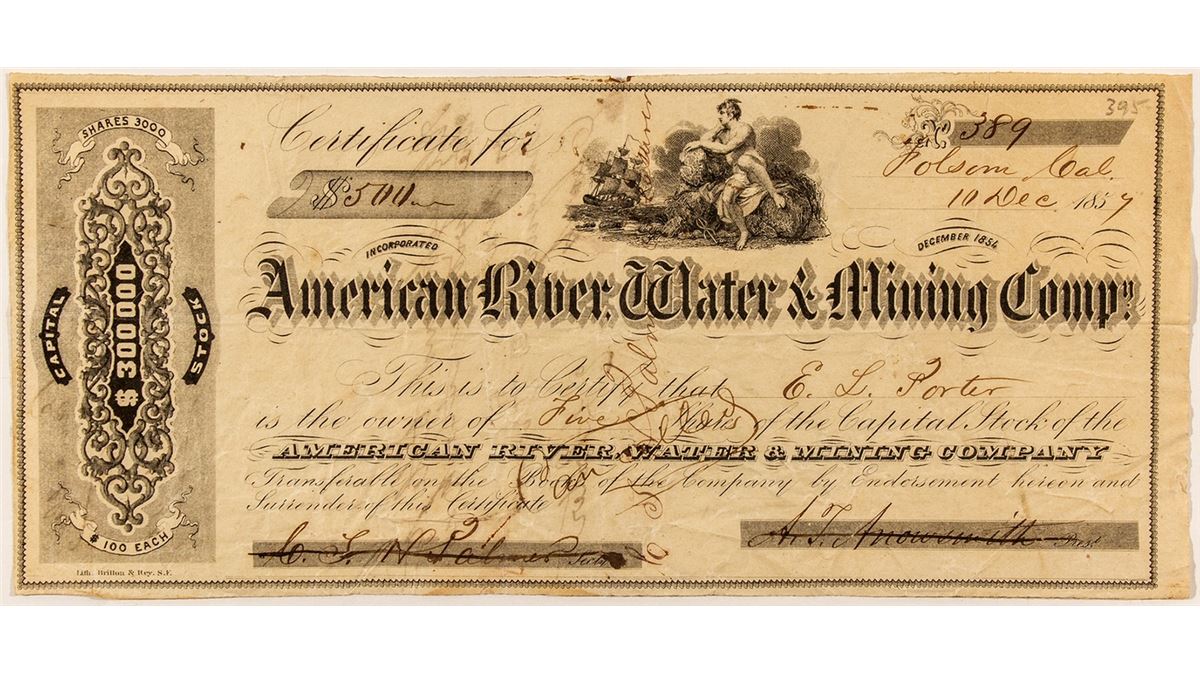 SHARES 3000
CAPITAL
$ 300000
STOCK
$ 100 EACH
Certificate for
$500
389
395
Folsom Cal.
10 Dec 1857
INCORPORATED
DECEMBER 1854
American River, Water & Mining Compy.
This is to Certify that E. L. Porter
is the owner of Five Shares of the Capital Stock of the
AMERICAN RIVER, WATER & MINING COMPANY
Transferable on the Books of the Company by Endorsement hereon and
Surrender of this Certificate
Palmer Secty
Pres.t
Lith. Britton & Rey. S.F.